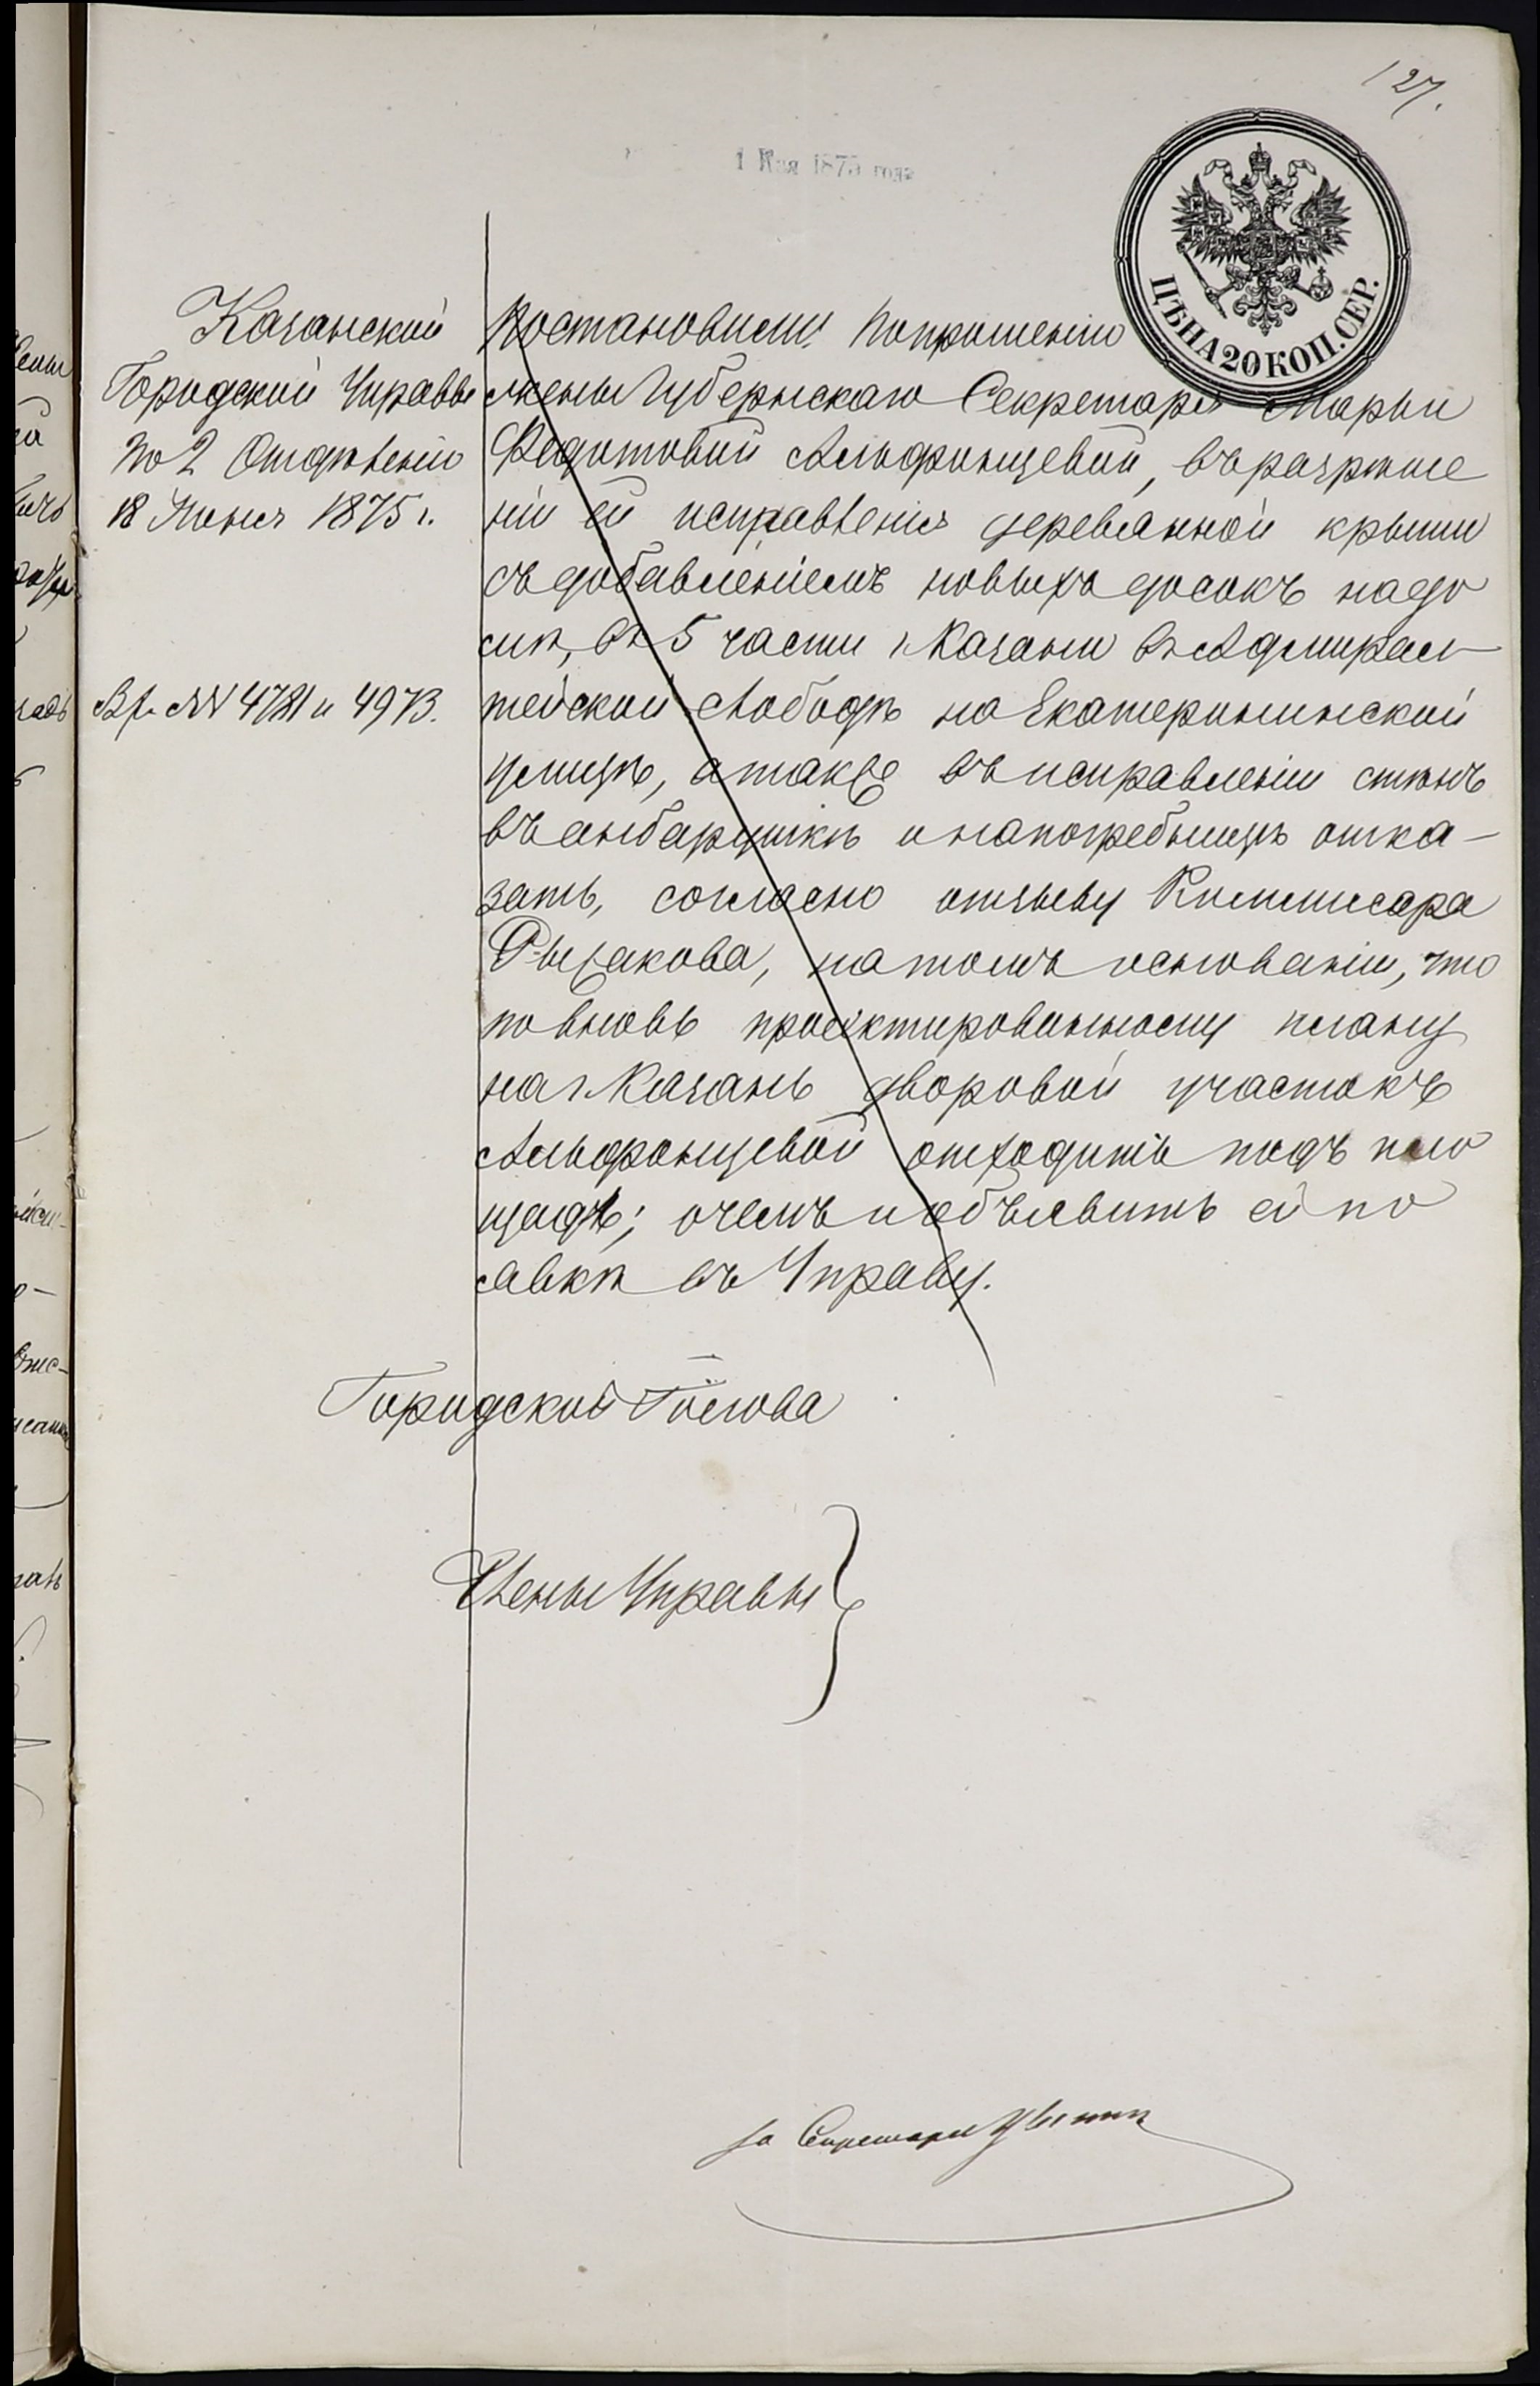 127.
1 Мая 1875 года
ЦѢНА 20 КОП. СЕР.
Казанской
Городской Управы
По 2 Отдѣленію
18 Июня 1875 г.
Вх. №№ 4781 и 4973.
Постановили: По прошенію
жены Губернскаго Секретаря Марьи
Федотовой Альфонцевой, въ разрѣше
ніи ей исправленія деревянной крыши
съ добавленіемъ новыхъ досокъ на до
мѣ, въ 5 части г. Казани въ Адмирал-
тейской Слободѣ на Екатерининской
улицѣ, а также въ исправленіи стѣнъ
въ анбарушкѣ и на погребницѣ отка-
зать, согласно отзыву Коммисара
Рыбакова, на томъ основаніи, что
по вновь проэктированному плану
на г. Казань дворовой участокъ
Альфонцевой отходитъ подъ пло
щадь; о чемъ и объявить ей по
явкѣ въ Управу.
Городской Голова
Члены Управы
За Секретаря